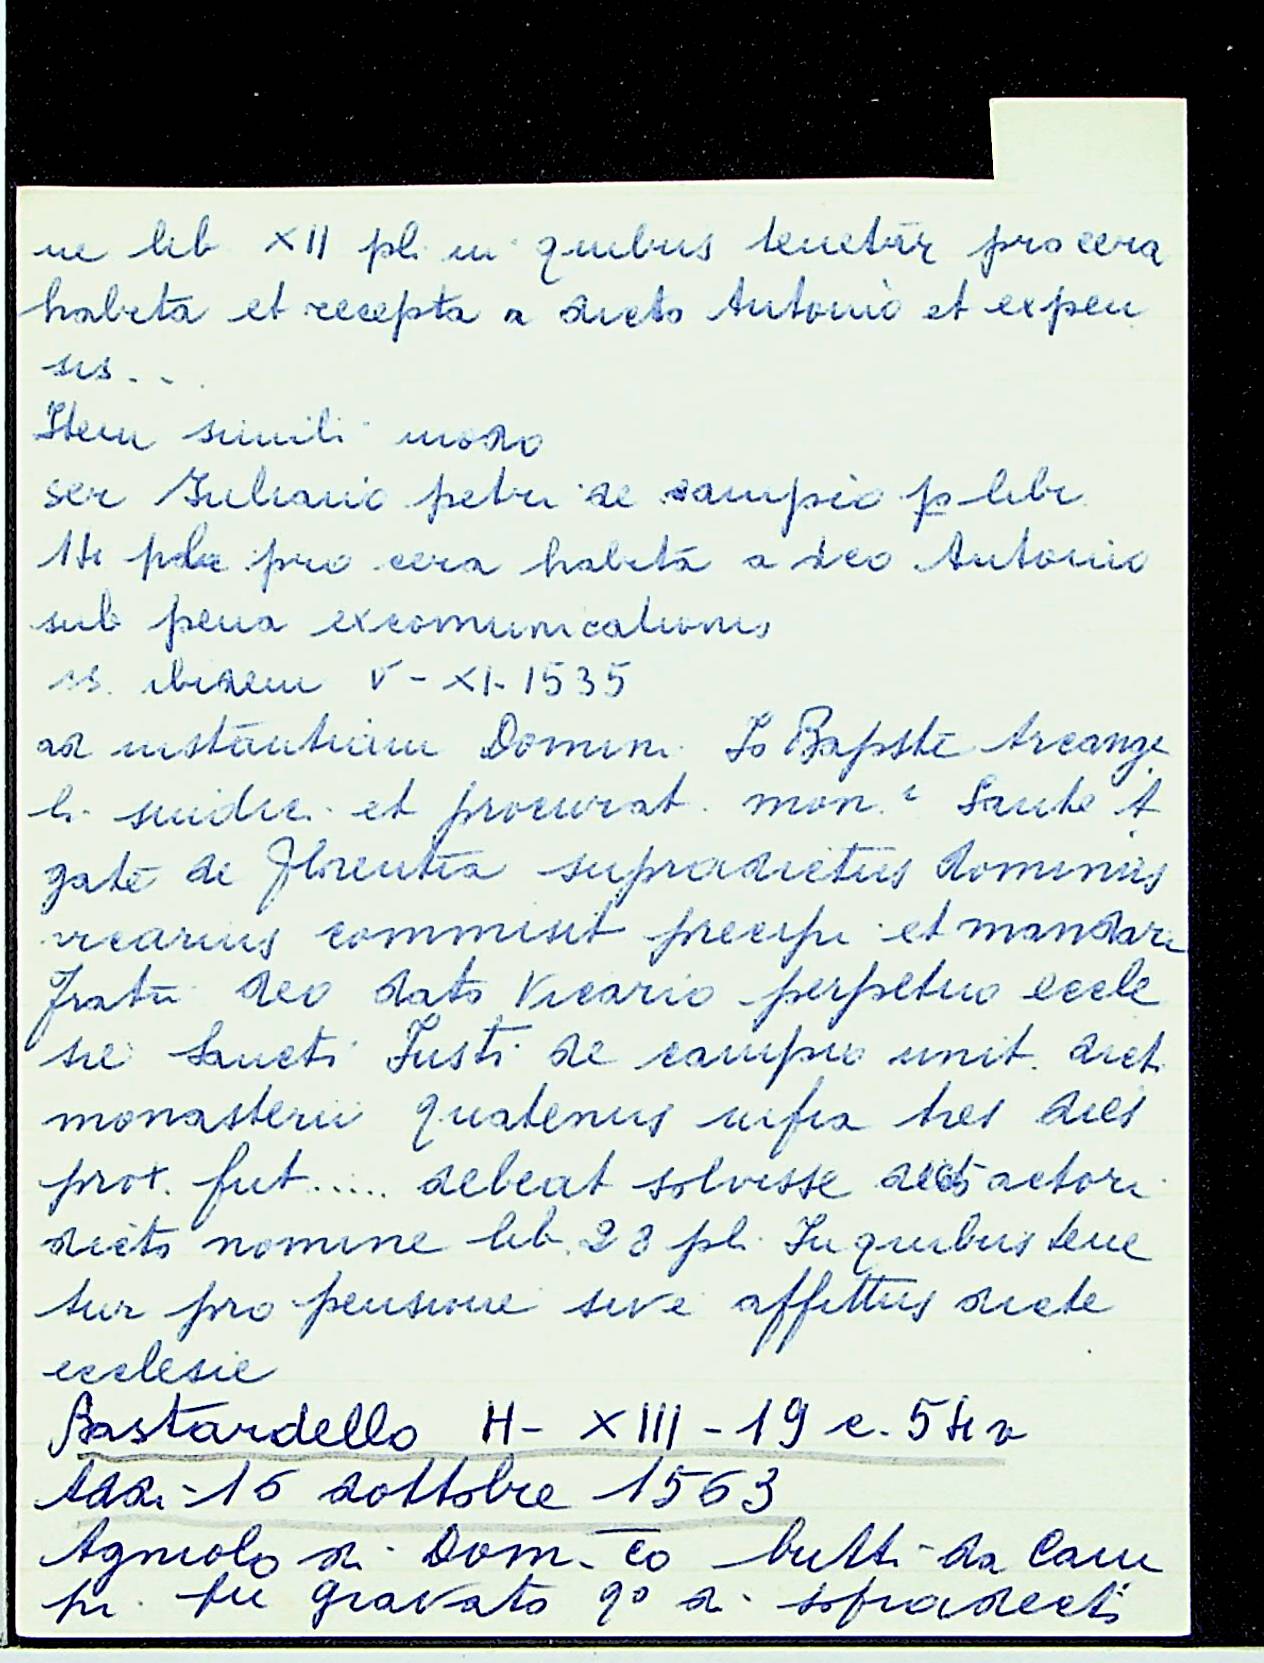 ne lib XII pl. in quibus tenetur pro cera
habita et recepta a dicto Antonio et expen
sis...
Item simili modo
ser Juliano petri de campio p libr.
14 pdc pro cera habita a dco Antonio
sub pena excomunicationis
ss. ibidem V-XI-1535
ad instantiam Domini Jo Bapste Arcange
li sindici et procurat. mon. Sante A
gate de Florentia supradictus dominus
vicarius commisit precipi et mandari
fratri deo dato Vicario perpetuo eccle
sie Sancti Justi de campio unit. dict.
monasterii quatenus infra tres dies
prox. fut..... debeat solvisse actori
dicto nomine lib. 28 pl. In quibus tene
tur pro pensione sive affittus dicte
ecclesie
Bastardello H-XIII-19 c. 54 v
Addi-16 dottobre 1563
Agniolo di Dom.co butti da Cam
pi fu gravato qo di sopradecti